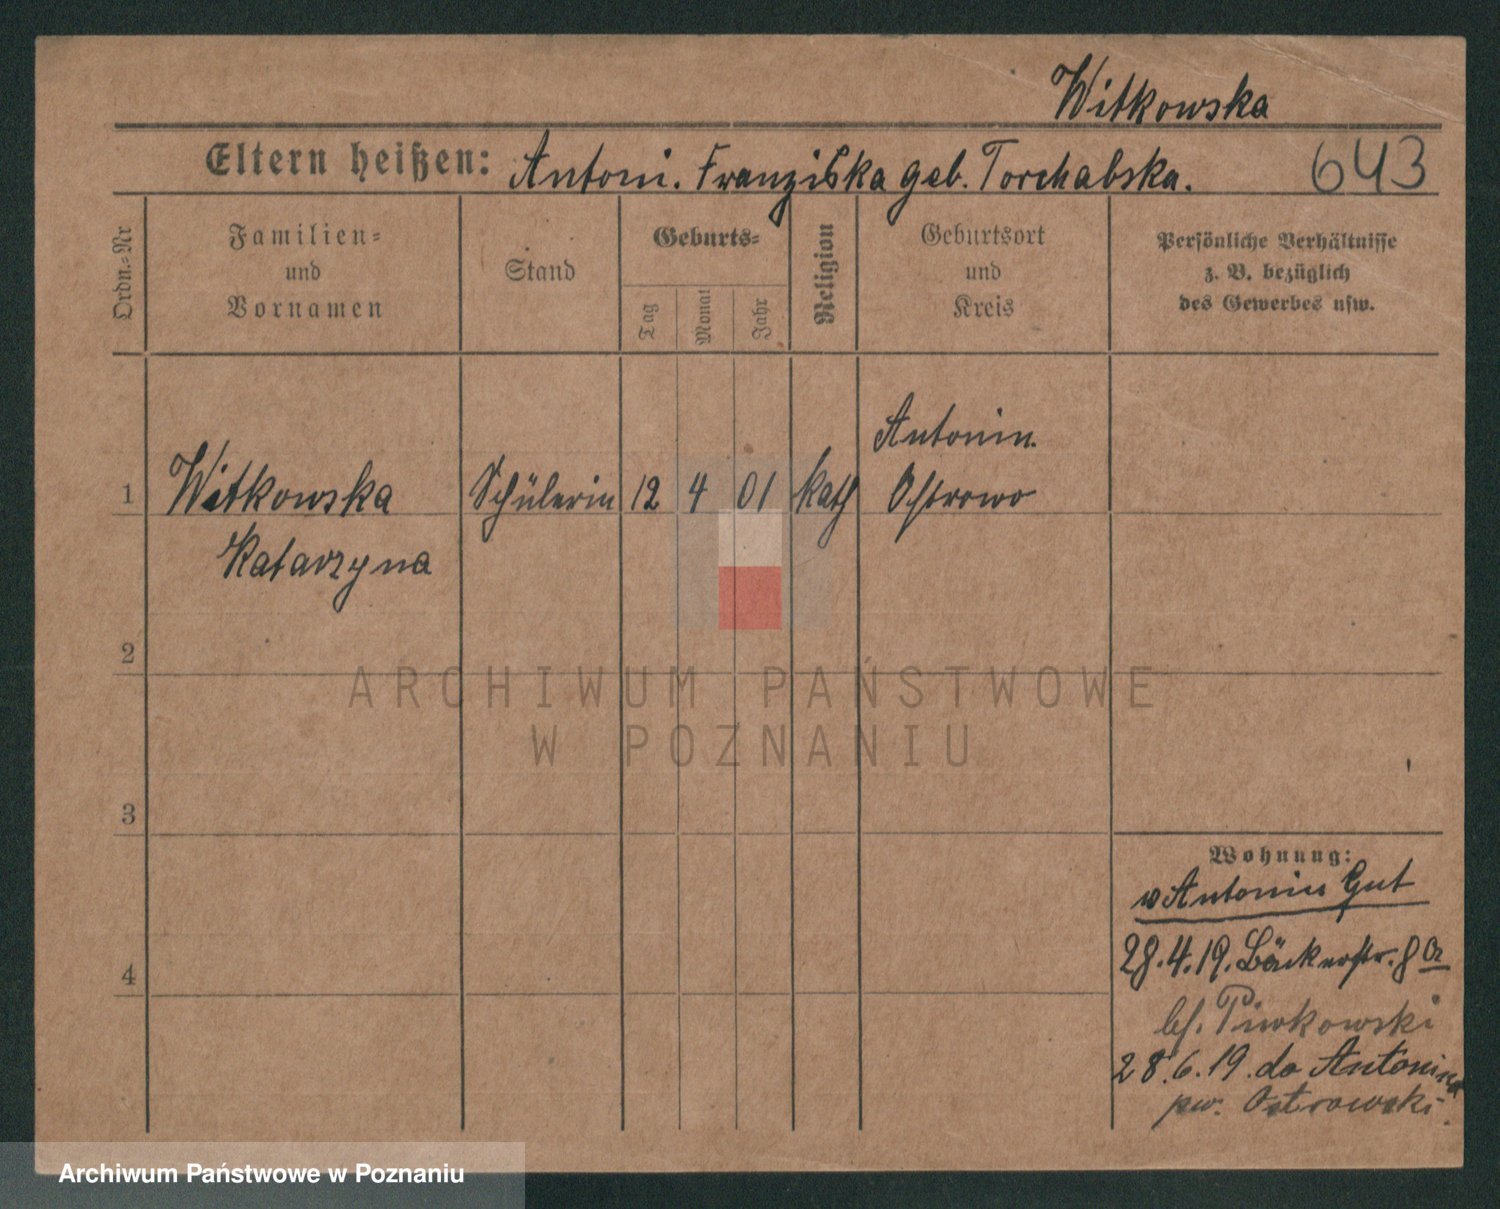 Witkowska
Eltern heißen: Antoni. Franziska geb. Torchabska.
643
Ordn.-Nr
Familien-
und
Vornamen
Stand
Geburts-
Tag
Monat
Jahr
Religion
Geburtsort
und
Kreis
Persönliche Verhältnisse
z. B. bezüglich
des Gewerbes usw.
Antonin.
1 Witkowska Schülerin 12 4 01 kath Ostrowo
Katarzyna
2
3
4
Wohnung:
v Antonin Gut
28.4.19. Bäckerstr. 8
bf. Piwkowski
28.6.19. do Antonina
pw. Ostrowski.
ARCHIWUM PAŃSTWOWE
W POZNANIU
Archiwum Państwowe w Poznaniu